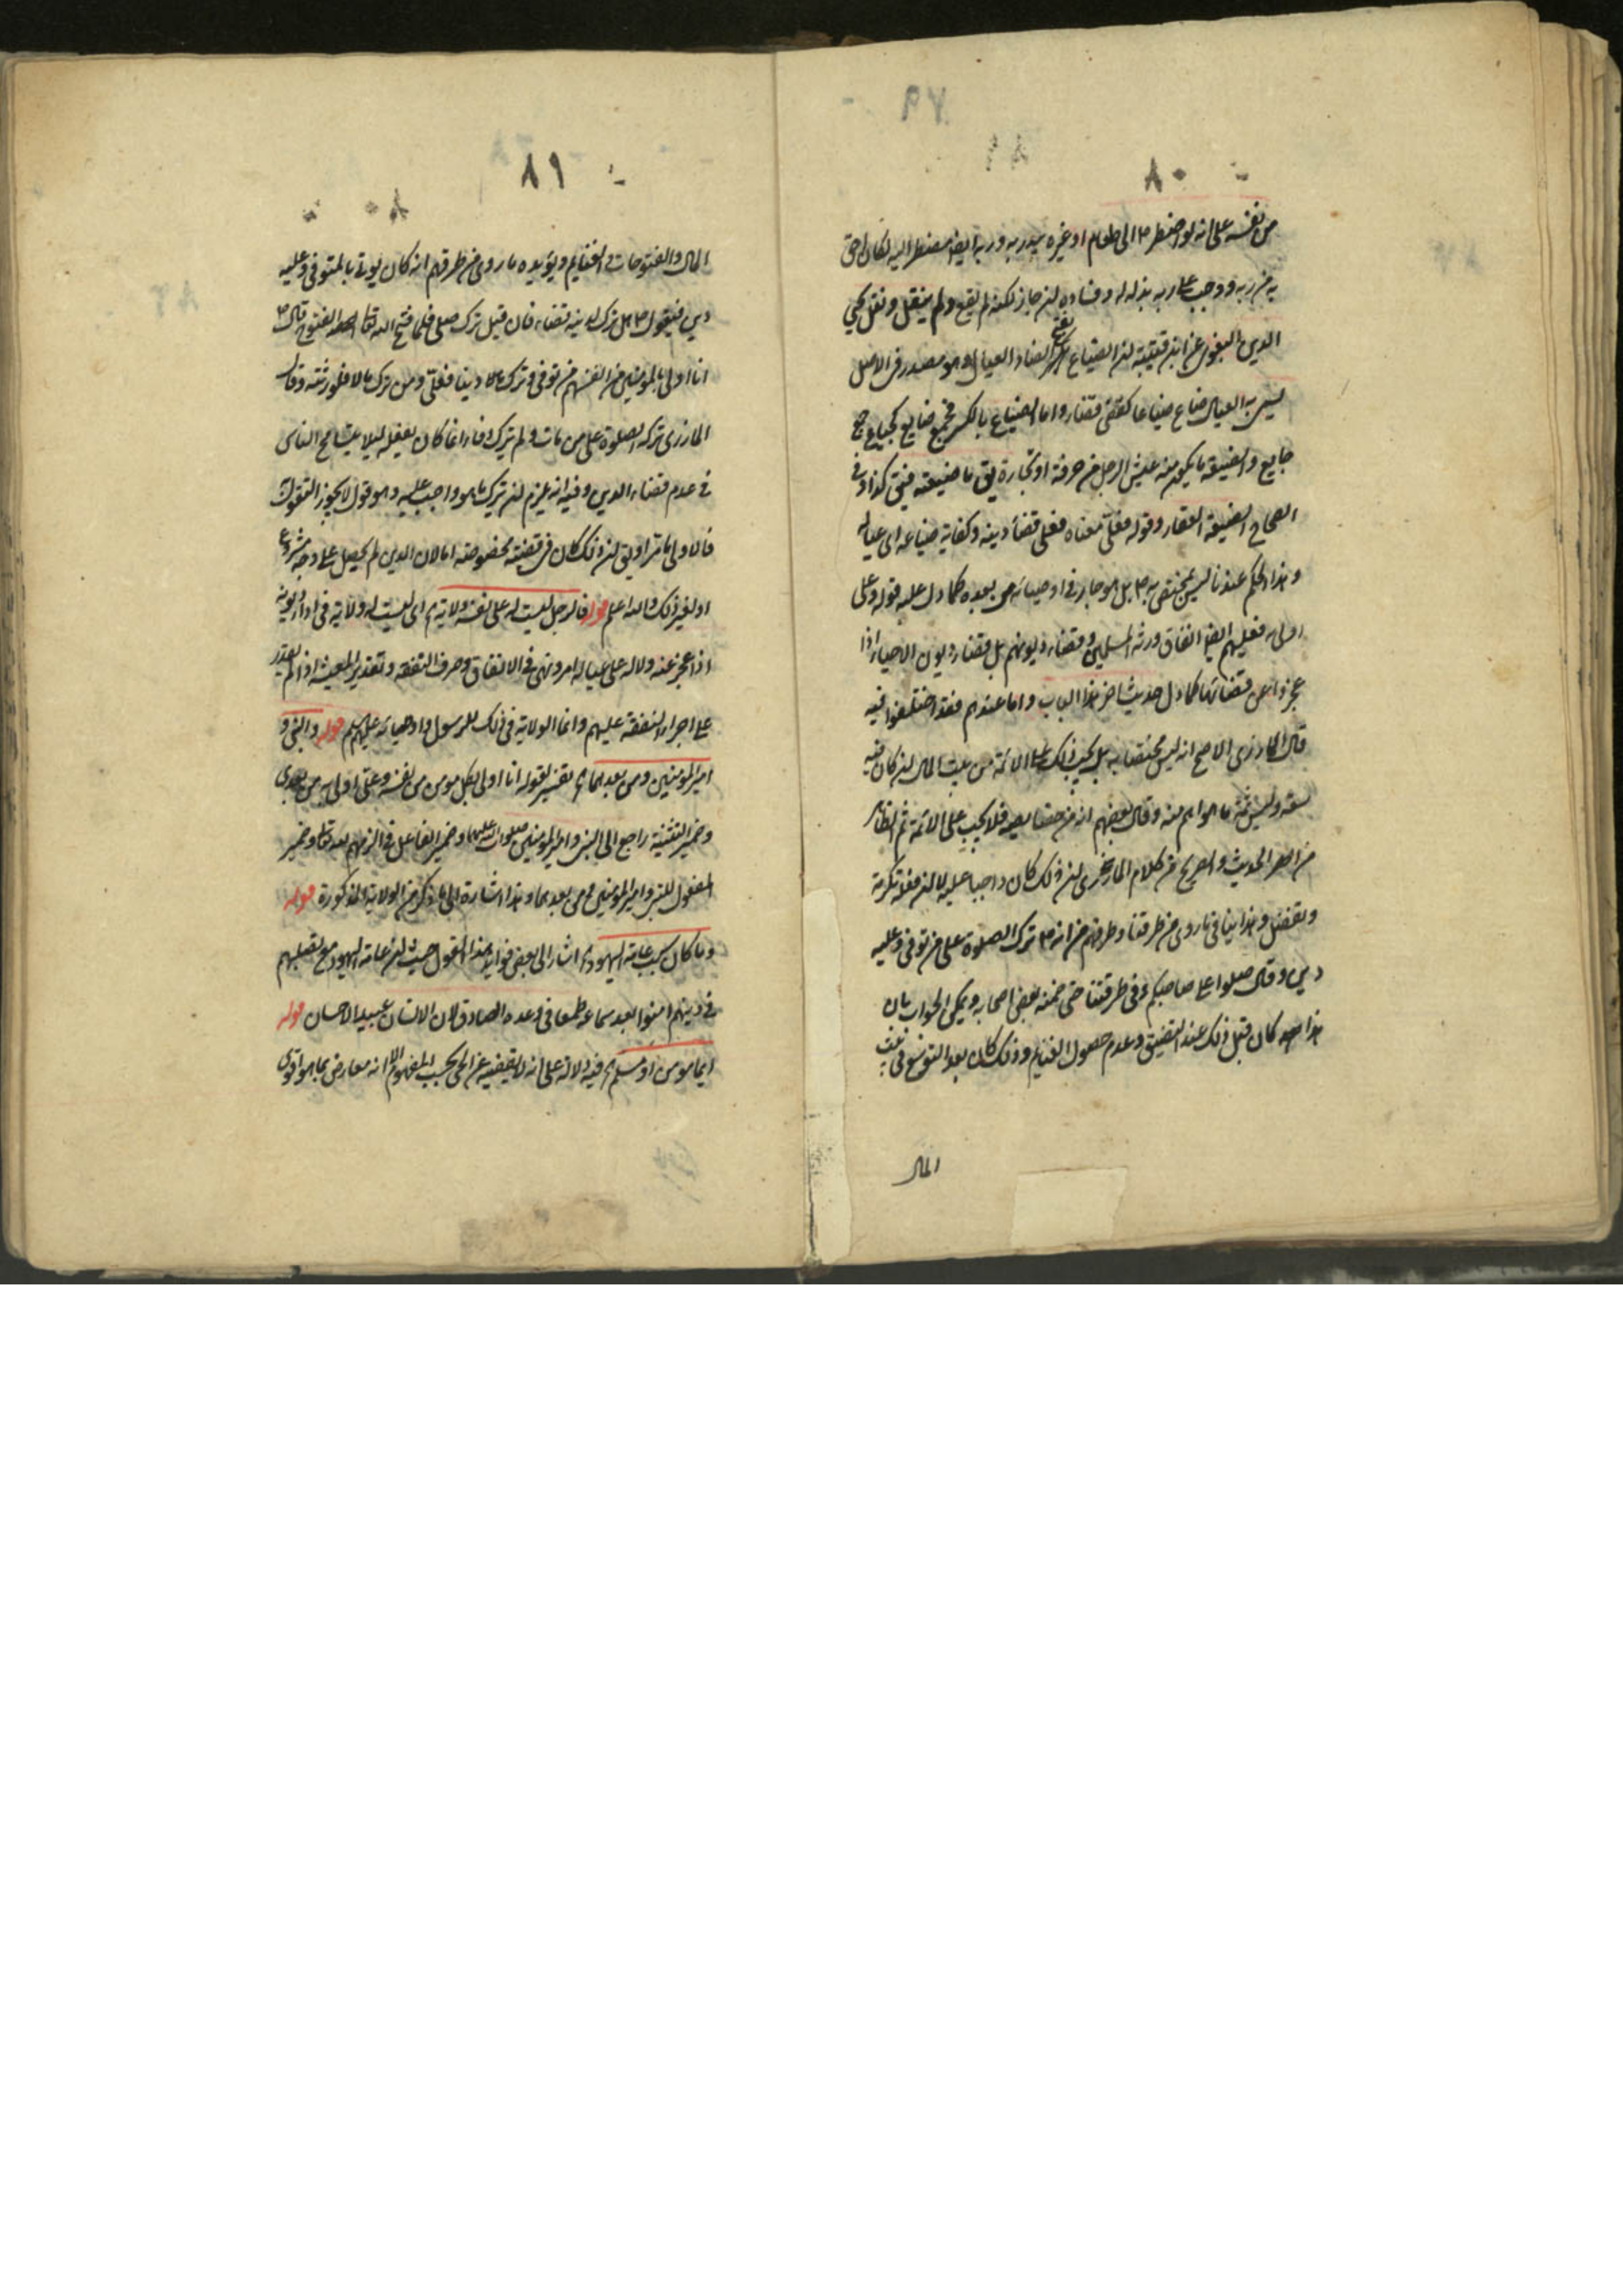 ٨٠
من نفسه على انه لو اضطر ع الى طعام او غيره بيد ربه وربه ايضا مضطر اليه لكان احق
به من ربه ووجب على ربه بذله له وهذا وان جاز لكنه لم يقع ولم ينقل ونقل محيي
الدين البغوي عن ابن قتيبة ان الضياع بفتح الضاد العيال وهو مصدر في الاصل
سمي به العيال ضاع ضياعا كقضى قضاء واما الضياع بالكسر فجمع ضايع كجياع جمع
جايع والضيعة ما يكون منه عيش الرجل من حرفة او تجارة يق ما ضيعته فيق كذا وفي
الصحاح الضيعة العقار وقوله فعلّي معناه فعلي قضاء دينه وكفاية ضياعه اى عياله
وهذا الحكم عندنا ليس بمختص به ع بل هو جار في اوصيائه من بعده كما دل عليه قوله وعلى
اولى به فعليهم ايضا انفاق ورثة المسلمين وقضاء ديونهم بل قضاء ديون الاحياء اذا
عجزوا عن قضائها كما دل حديث اخر هذا الباب واما عندهم فقد اختلفوا فيه
قال المازري الاصح انه ليس مختصا به بل يجب ذلك على الائمة من بيت المال ان كان فيه
سعة وليس ثمة ما هو اهم منه وقال بعضهم انه من خصايصه فلا يجب على الائمة ثم الظاهر
من هذا الحديث والصريح من كلام المازري ان ذلك كان واجبا عليه لا ان فعله تكرمة
وتفضل وهذا ينافي ما روي من طرقنا وطرقهم من انه ع ترك الصلوة على من توفي وعليه
دين وقال صلوا على صاحبكم وفي طرقنا حتى ضمنه بعض اصحابه ويمكن الجواب بان
هذا كان قبل ذلك عند التضيق وعدم حصول الغنايم وذلك كان بعد التوسع في بيت
المال
٨١
المال والفتوحات والغنايم ويؤيده ما روي من طرقهم انه كان يؤتى بالمتوفي وعليه
دين فيقول ع هل ترك لدينه قضاء فان قيل ترك صلى فلما فتح الله تعالى الفتوح قال ع
انا اولى بالمؤمنين من انفسهم من توفي وترك دينا فعلّي ومن ترك مالا فلورثته وقال
المازري تركه الصلوة على من مات ولم يترك وفاء انما كان يفعله ليلا يتسامح الناس
في عدم قضاء الدين وفيه انه يلزم ان يترك ما هو واجب عليه وهو قول لا يجوز التفوه
فالاولى ان ذلك كان في قضية مخصوصة اما لان الدين لم يحصل على وجه مشروع
او لغير ذلك والله اعلم قوله فالرجل ليست له على نفسه ولاية اى ليست له ولاية في اداء ديونه
اذا عجز عنه ولا له على عياله امر ونهى في الانفاق وصرف النفقة وتقدير المعيشة اذا لم يقدر
على اجراء النفقة عليهم وانما الولاية في ذلك للرسول واوصيائه عليهم السلام قوله والنبي و
امير المؤمنين ومن بعدهما تفسير لقوله انا اولى بكل مومن من نفسه وعلى اولى به من بعدي
وضمير التثنية راجع الى النبي وامير المؤمنين صلوات الله عليهما وضمير الفاعل في الزمهم لله تعالى وضمير
المفعول للنبي وامير المؤمنين ومن بعدهما وهذا اشارة الى ما ذكر من الولاية المذكورة قوله
وما كان سبب عامة اليهود اشار الى بعض فوايد هذا القول حيث ان عامة اليهود مع تصلبهم
في دينهم امنوا بعد سماعه طمعا في وعده الصادق لان الانسان عبيد الاحسان قوله
ايما مومن او مسلم فيه دلالة على انه لا يقضيه عن الحي بحسب المفهوم الا انه معارض بما هو اقوى